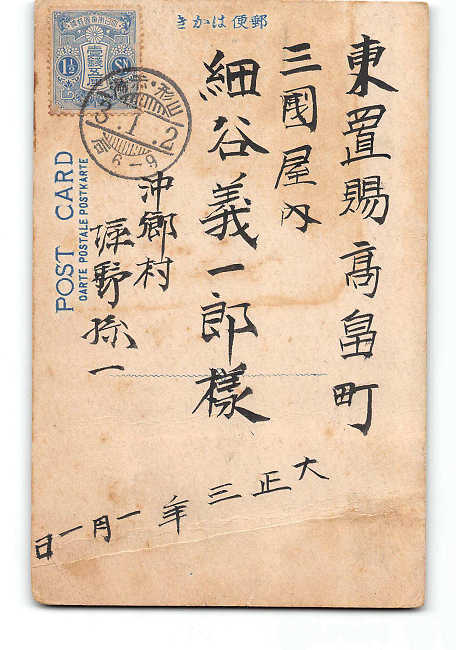 きかは便郵
東置賜高畠町
三國屋内
細谷義一郎様
沖郷村
野孫一
大正三年一月一日
POST CARD
CARTE POSTALE POSTKARTE
山形
3.1.2
后6-9
1½ Sn